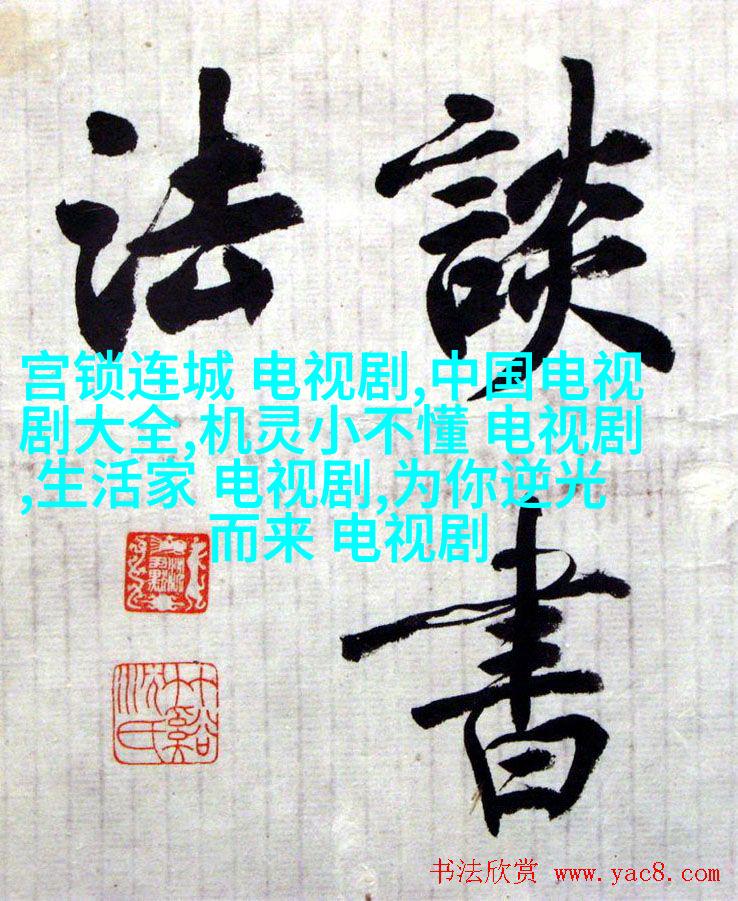 談書
法
宫锁连城 电视剧,中国电视
剧大全,机灵小不懂 电视剧
,生活家 电视剧,为你逆光
而来 电视剧
书法欣赏 www.yac8.com